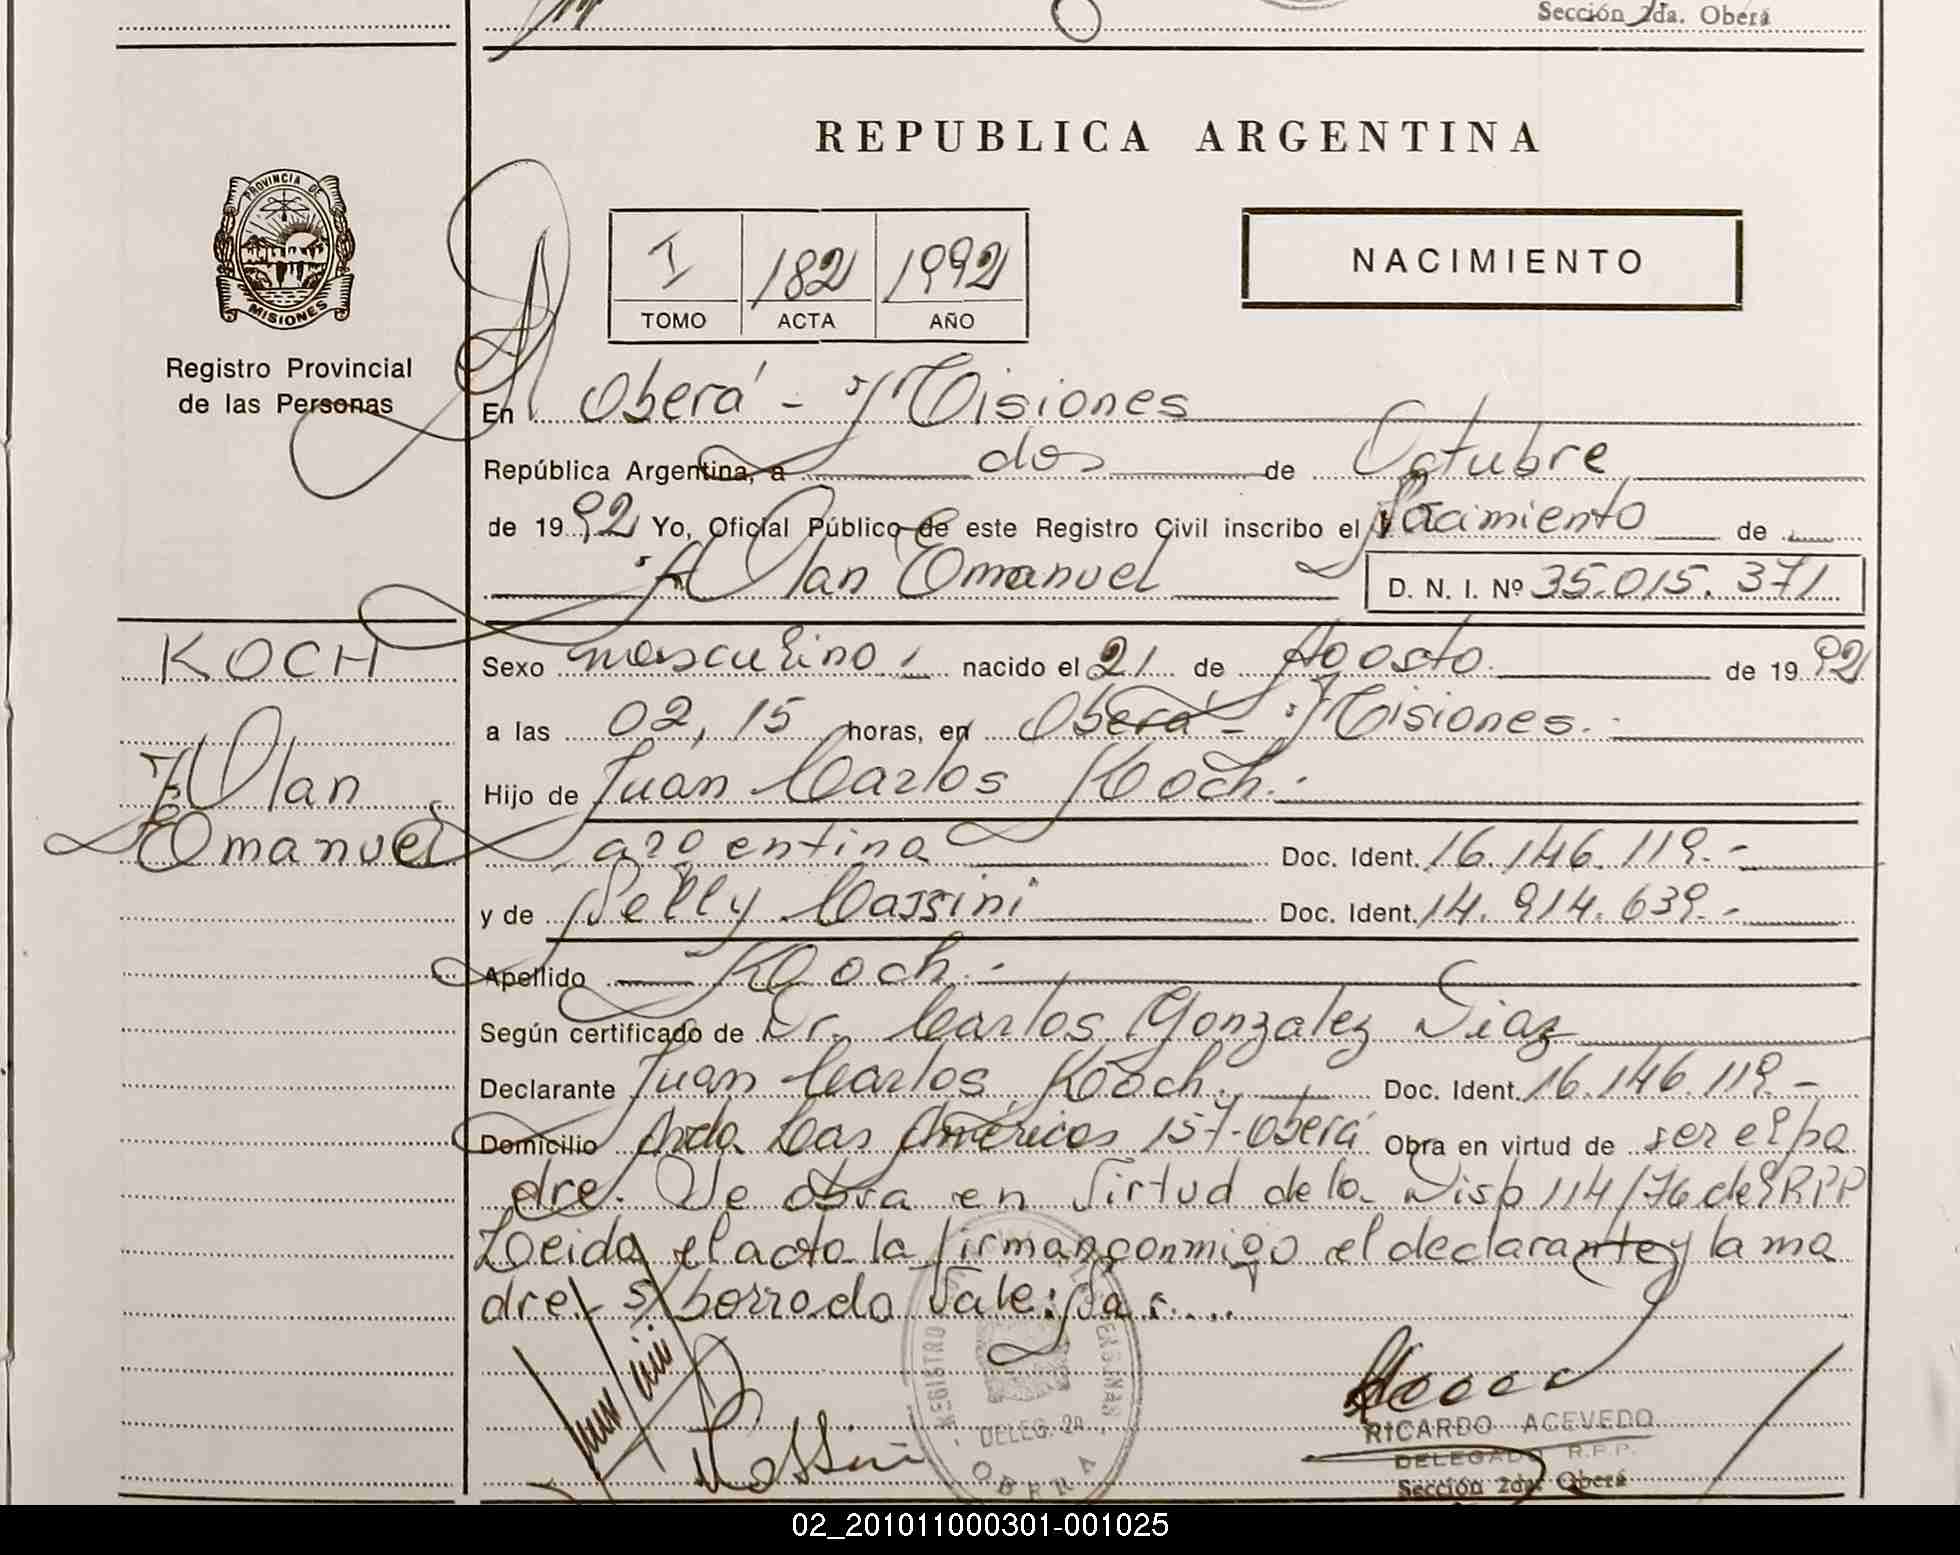 Sección 2da. Oberá
REPUBLICA ARGENTINA
PROVINCIA DE
MISIONES
Registro Provincial
de las Personas
I 182 1992
TOMO ACTA AÑO
NACIMIENTO
En Oberá - Misiones
República Argentina, a dos de Octubre
de 1992 Yo, Oficial Público de este Registro Civil inscribo el Nacimiento de
Alan Emanuel D. N. I. Nº 35.015.371
KOCH
Alan
Emanuel
Sexo masculino.- nacido el 21 de Agosto de 1992
a las 02,15 horas, en Oberá - Misiones.-
Hijo de Juan Carlos Koch.-
argentina Doc. Ident. 16.146.119.-
y de Nelly Cassini Doc. Ident. 14.914.639.-
Apellido Koch.-
Según certificado de Dr. Carlos Gonzalez Diaz
Declarante Juan Carlos Koch. Doc. Ident. 16.146.119.-
Domicilio Avda. Las Américas 157-Oberá Obra en virtud de ser el pa
dre. Se obra en Virtud de la Disp 114/76 del RPP
Leida el acta la firman conmigo el declarante y la ma
dre.- s/borrado Vale: Nac....
REGISTRO
DELEG. 2a
OBERA
RICARDO ACEVEDO
DELEGADO R.P.P.
Sección 2da. Oberá
02_201011000301-001025